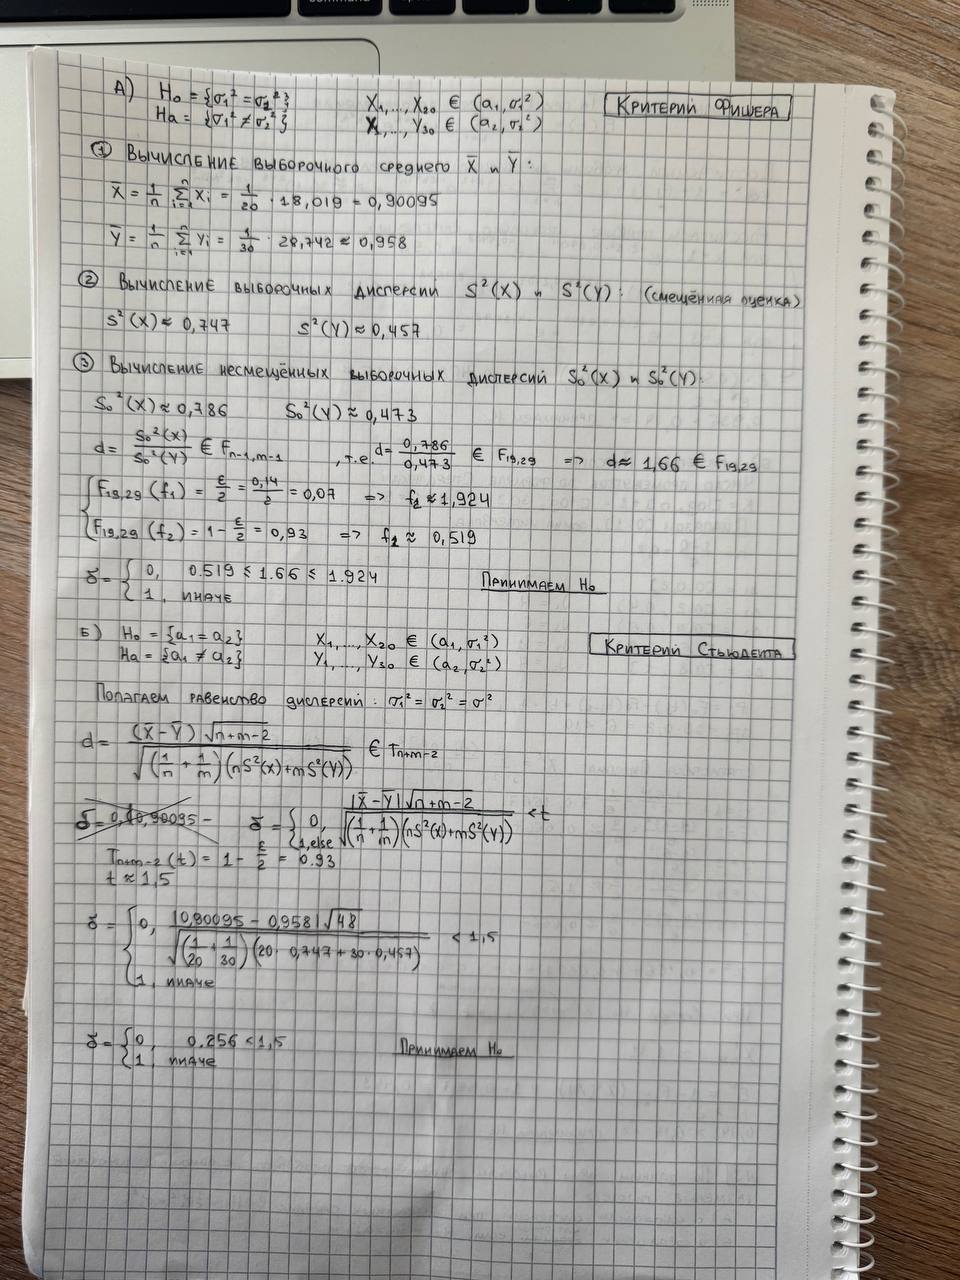 command
А) H₀ = {σ₁² = σ₂²} X₁,...,X₂₀ ∈ (a₁,σ₁²) Критерий Фишера
Hа = {σ₁² ≠ σ₂²} Y₁,...,Y₃₀ ∈ (a₂,σ₂²)
① Вычисление выборочного среднего X̄ и Ȳ:
X̄ = 1/n ∑ᵢ₌₁ⁿ Xᵢ = 1/20 · 18,019 = 0,90095
Ȳ = 1/n ∑ᵢ₌₁ⁿ Yᵢ = 1/30 · 28,742 ≈ 0,958
② Вычисление выборочных дисперсий S²(X) и S²(Y): (смещённая оценка)
S²(X) ≈ 0,747 S²(Y) ≈ 0,457
③ Вычисление несмещённых выборочных дисперсий S₀²(X) и S₀²(Y):
S₀²(X) ≈ 0,786 S₀²(Y) ≈ 0,473
d = S₀²(X)/S₀²(Y) ∈ Fₙ₋₁,ₘ₋₁ , т.е. d = 0,786/0,473 ∈ F₁₉,₂₉ => d ≈ 1,66 ∈ F₁₉,₂₉
{ F₁₉,₂₉(f₁) = ε/2 = 0,14/2 = 0,07 => f₂ ≈ 1,924
F₁₉,₂₉(f₂) = 1 - ε/2 = 0,93 => f₁ ≈ 0,519
δ = { 0, 0.519 ≤ 1.66 ≤ 1.924 Принимаем H₀
1, иначе
Б) H₀ = {a₁ = a₂} X₁,...,X₂₀ ∈ (a₁,σ₁²) Критерий Стьюдента
Hа = {a₁ ≠ a₂} Y₁,...,Y₃₀ ∈ (a₂,σ₂²)
Полагаем равенство дисперсий: σ₁² = σ₂² = σ²
d = (X̄-Ȳ)√(n+m-2) / √((1/n + 1/m)(nS²(X)+mS²(Y))) ∈ Tₙ₊ₘ₋₂
δ = { 0, |X̄-Ȳ|√(n+m-2) / √((1/n + 1/m)(nS²(X)+mS²(Y))) < t
1, else
Tₙ₊ₘ₋₂(t) = 1 - ε/2 = 0.93
t ≈ 1,5
δ = { 0, |0,90095 - 0,958|√48 / √((1/20 + 1/30)(20·0,747+30·0,457)) < 1,5
1, иначе
δ = { 0, 0.256 < 1,5 Принимаем H₀
1, иначе